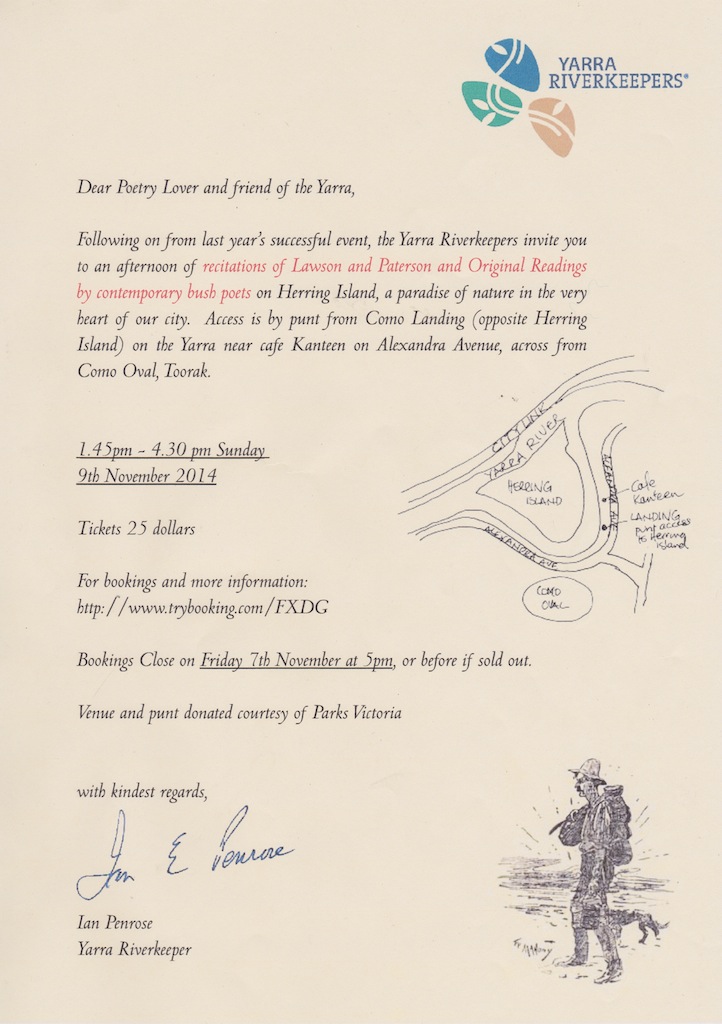 YARRA
RIVERKEEPERS®
Dear Poetry Lover and friend of the Yarra,
Following on from last year's successful event, the Yarra Riverkeepers invite you
to an afternoon of recitations of Lawson and Paterson and Original Readings
by contemporary bush poets on Herring Island, a paradise of nature in the very
heart of our city. Access is by punt from Como Landing (opposite Herring
Island) on the Yarra near cafe Kanteen on Alexandra Avenue, across from
Como Oval, Toorak.
1.45pm - 4.30 pm Sunday
9th November 2014
Tickets 25 dollars
For bookings and more information:
http://www.trybooking.com/FXDG
Bookings Close on Friday 7th November at 5pm, or before if sold out.
Venue and punt donated courtesy of Parks Victoria
CITY LINK
YARRA RIVER
HERRING
ISLAND
ALEXANDRA AVE
Cafe
Kanteen
LANDING
punt access
to Herring
Island
ALEXANDRA AVE
COMO
OVAL
with kindest regards,
Ian E Penrose
Ian Penrose
Yarra Riverkeeper